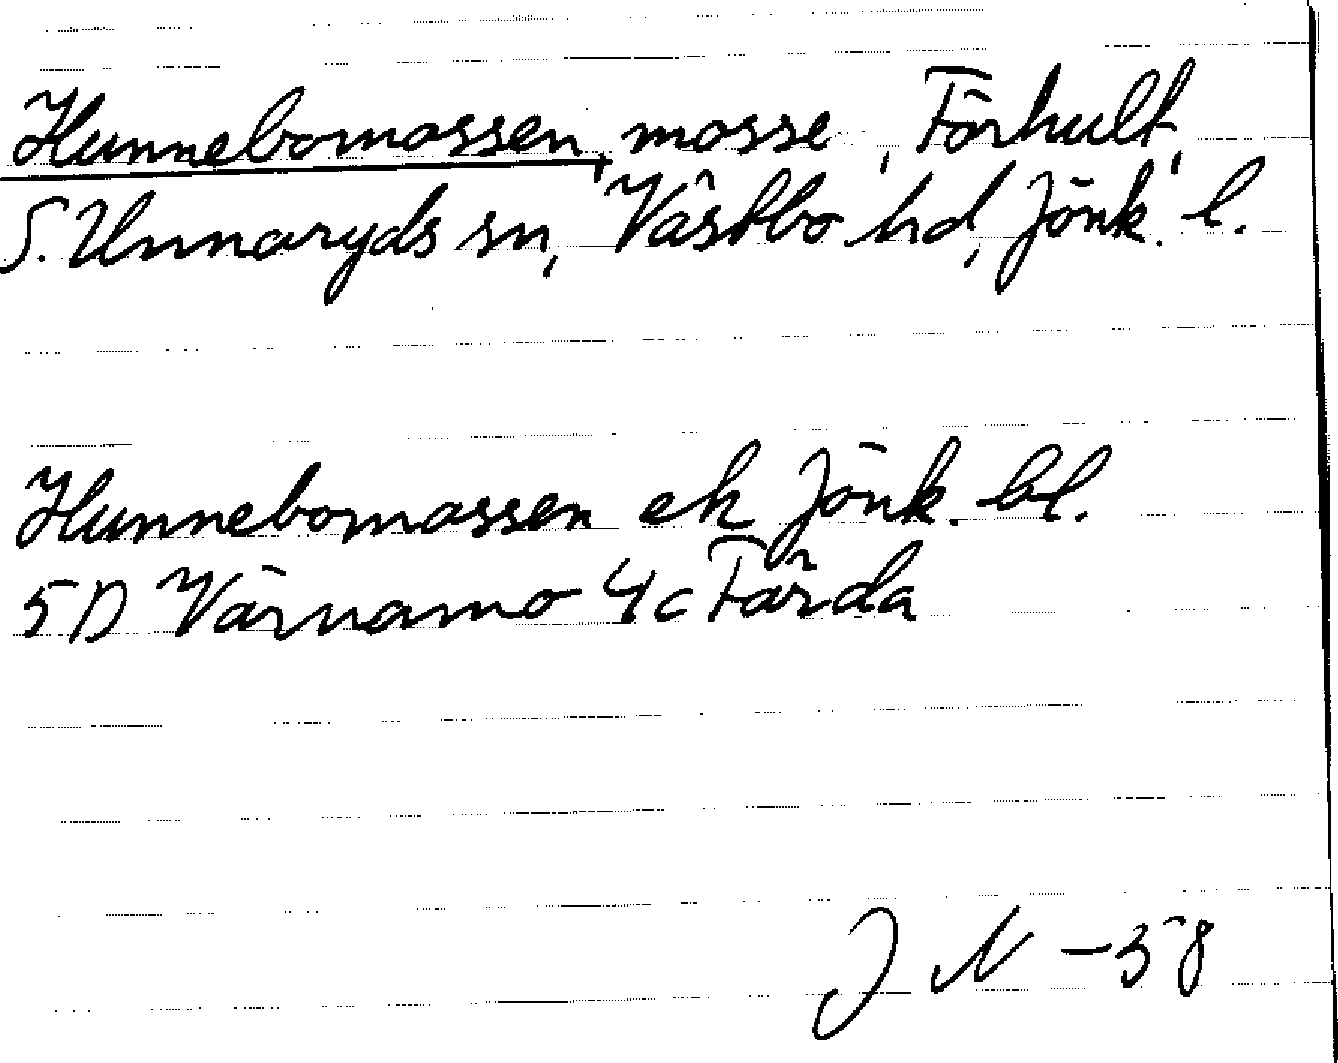 Hunnebomossen, mosse, Förhult,
S. Unnaryds sn, Västbo hd, Jönk. l.
Hunnebomossen ek Jönk. bl.
5D Värnamo 4c Färda
J N -58